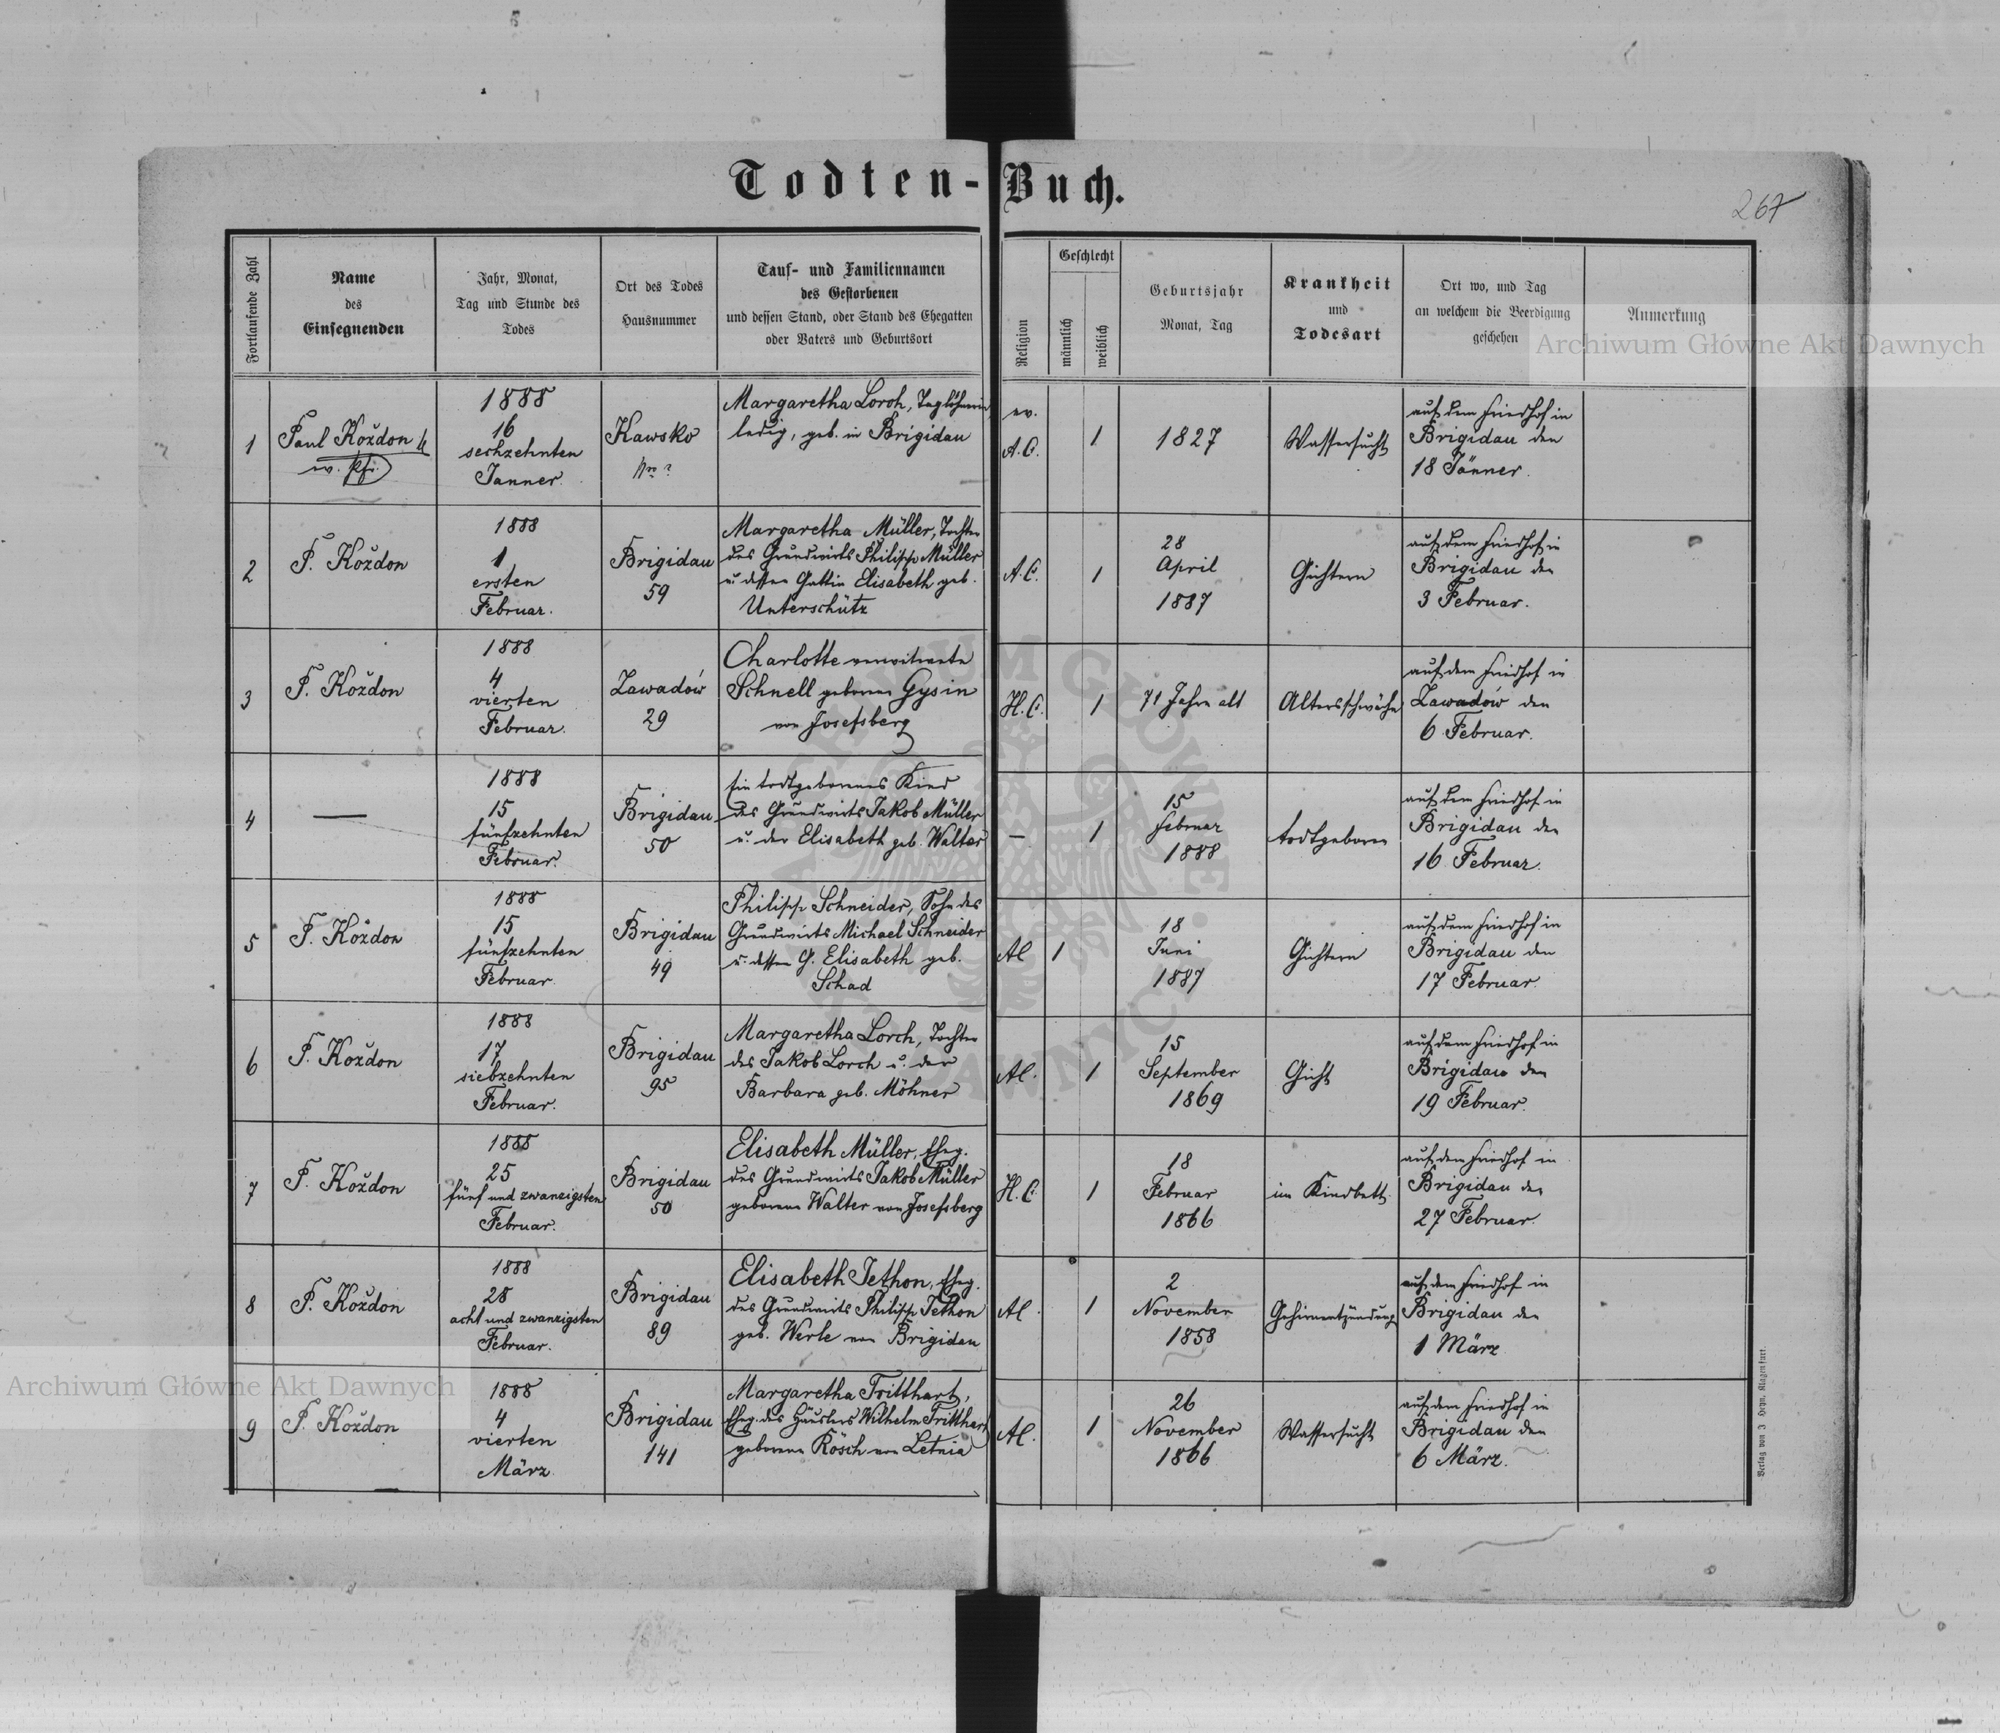 Todten-Buch.
267
Fortlaufende Zahl
Name
des
Einsegnenden
Jahr, Monat,
Tag und Stunde des
Todes
Ort des Todes
Hausnummer
Tauf- und Familiennamen
des Gestorbenen
und dessen Stand, oder Stand des Ehegatten
oder Vaters und Geburtsort
Religion
Geschlecht
männlich
weiblich
Geburtsjahr
Monat, Tag
Krankheit
und
Todesart
Ort wo, und Tag
an welchem die Beerdigung
geschehen
Anmerkung
Archiwum Główne Akt Dawnych
1
Paul Koždon
ev. Pfr.
1888
16
sechzehnten
Janner.
Kawsko
Nro ?
Margaretha Lorch, Taglöhnerin
ledig, geb. in Brigidau
ev.
A.C.
1
1827
Wassersucht
auf dem Friedhof in
Brigidau den
18 Jänner.
2
P. Koždon
1888
1
ersten
Februar.
Brigidau
59
Margaretha Müller, Tochter
des Grundwirts Philipp Müller
u. dessen Gattin Elisabeth geb.
Unterschütz
A.C.
1
28
April
1887
Gichtern
auf dem Friedhof in
Brigidau den
3 Februar.
3
P. Koždon
1888
4
vierten
Februar.
Zawadów
29
Charlotte verwitwete
Schnell geborene Gysin
von Josefsberg
H.C.
1
71 Jahre alt
Altersschwäche
auf dem Friedhof in
Zawadów den
6 Februar.
4
—
1888
15
fünfzehnten
Februar.
Brigidau
50
Ein todtgeborenes Kind
des Grundwirts Jakob Müller
u. der Elisabeth geb. Walter
—
1
15
Februar
1888
todtgeboren
auf dem Friedhof in
Brigidau den
16 Februar.
5
P. Koždon
1888
15
fünfzehnten
Februar.
Brigidau
49
Philipp Schneider, Sohn des
Grundwirts Michael Schneider
u. dessen G. Elisabeth geb.
Schad
AC
1
18
Juni
1887
Gichtern
auf dem Friedhof in
Brigidau den
17 Februar.
6
P. Koždon
1888
17
siebzehnten
Februar.
Brigidau
95
Margaretha Lorch, Tochter
des Jakob Lorch u. der
Barbara geb. Möhner
AC.
1
15
September
1869
Gicht
auf dem Friedhof in
Brigidau den
19 Februar.
7
P. Koždon
1888
25
fünf und zwanzigsten
Februar.
Brigidau
50
Elisabeth Müller, Eheg.
des Grundwirts Jakob Müller
geborene Walter von Josefsberg
H.C.
1
18
Februar
1866
im Kindbett
auf dem Friedhof in
Brigidau den
27 Februar.
8
P. Koždon
1888
28
acht und zwanzigsten
Februar.
Brigidau
89
Elisabeth Jethon, Eheg.
des Grundwirts Philipp Jethon
geb. Werle von Brigidau
AC.
1
2
November
1858
Gehirnentzündung
auf dem Friedhof in
Brigidau den
1 März
9
P. Koždon
1888
4
vierten
März.
Brigidau
141
Margaretha Tritthart,
Eheg. des Häuslers Wilhelm Tritthart
geborene Rösch von Letnia
AC.
1
26
November
1866
Wassersucht
auf dem Friedhof in
Brigidau den
6 März.
Archiwum Główne Akt Dawnych